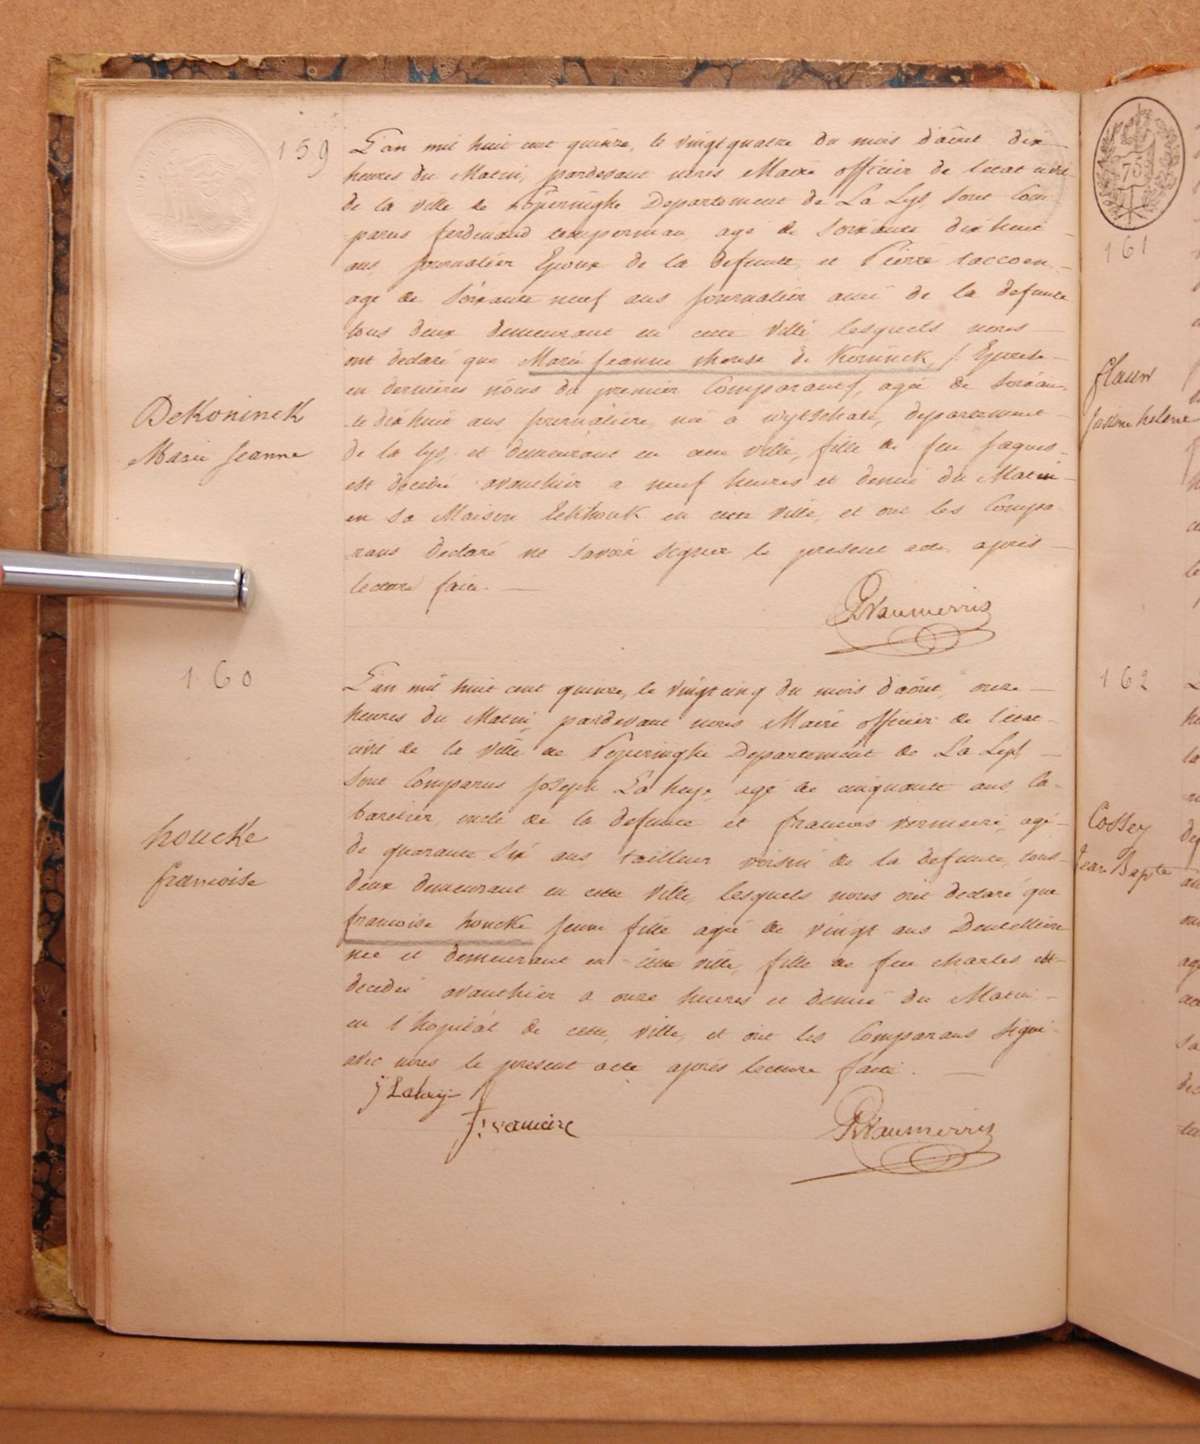 159
L'an mil huit cent quinze, le vingt quatre du mois d'août dix
heures du Matin, pardevant nous Maire officier de l'etat civil
de la ville de Poperinghe Departement de La Lys sont Com-
parus ferdinand age de soixante dix huit
ans journalier Epoux de la defunte et Pierre
age de soixante neuf ans journalier ami de la defunte
tous deux demeurant en cette ville lesquels nous
ont declaré que Marie Jeanne therese de Koninck, Epouse
en dernieres nôces du premier Comparant, agée de soixan-
te dix huit ans journaliere, née a wytschate, departement
de la lys, et demeurant en cette ville, fille de feu Jaques
est decedée avanthier a neuf heures et demie du Matin
en sa Maison en cette ville, et ont les Compa-
rans declaré ne savoir signer le present acte, après
lecture faite.
DeKoninck
Marie Jeanne
PVanmerris
160
L'an mil huit cent quinze, le vingt cinq du mois d'août, onze
heures du Matin, pardevant nous Maire officier de l'etat
civil de la ville de Poperinghe Departement de La Lys
sont Comparus Joseph La heye, agé de cinquante ans, ca-
baretier, oncle de la defunte et francois vermeire, agé
de quarante six ans tailleur voisin de la defunte, tous
deux demeurant en cette ville, lesquels nous ont declaré que
francoise houcke jeune fille agée de vingt ans Dentelliere
née et demeurant en cette ville, fille de feu charles est
decedée avanthier a onze heures et demie du Matin
en l'hopital de cette ville, et ont les Comparans signé
avec nous le present acte après lecture faite.
houcke
francoise
PVanmerris
161
162
Cossey
Jean Bapte